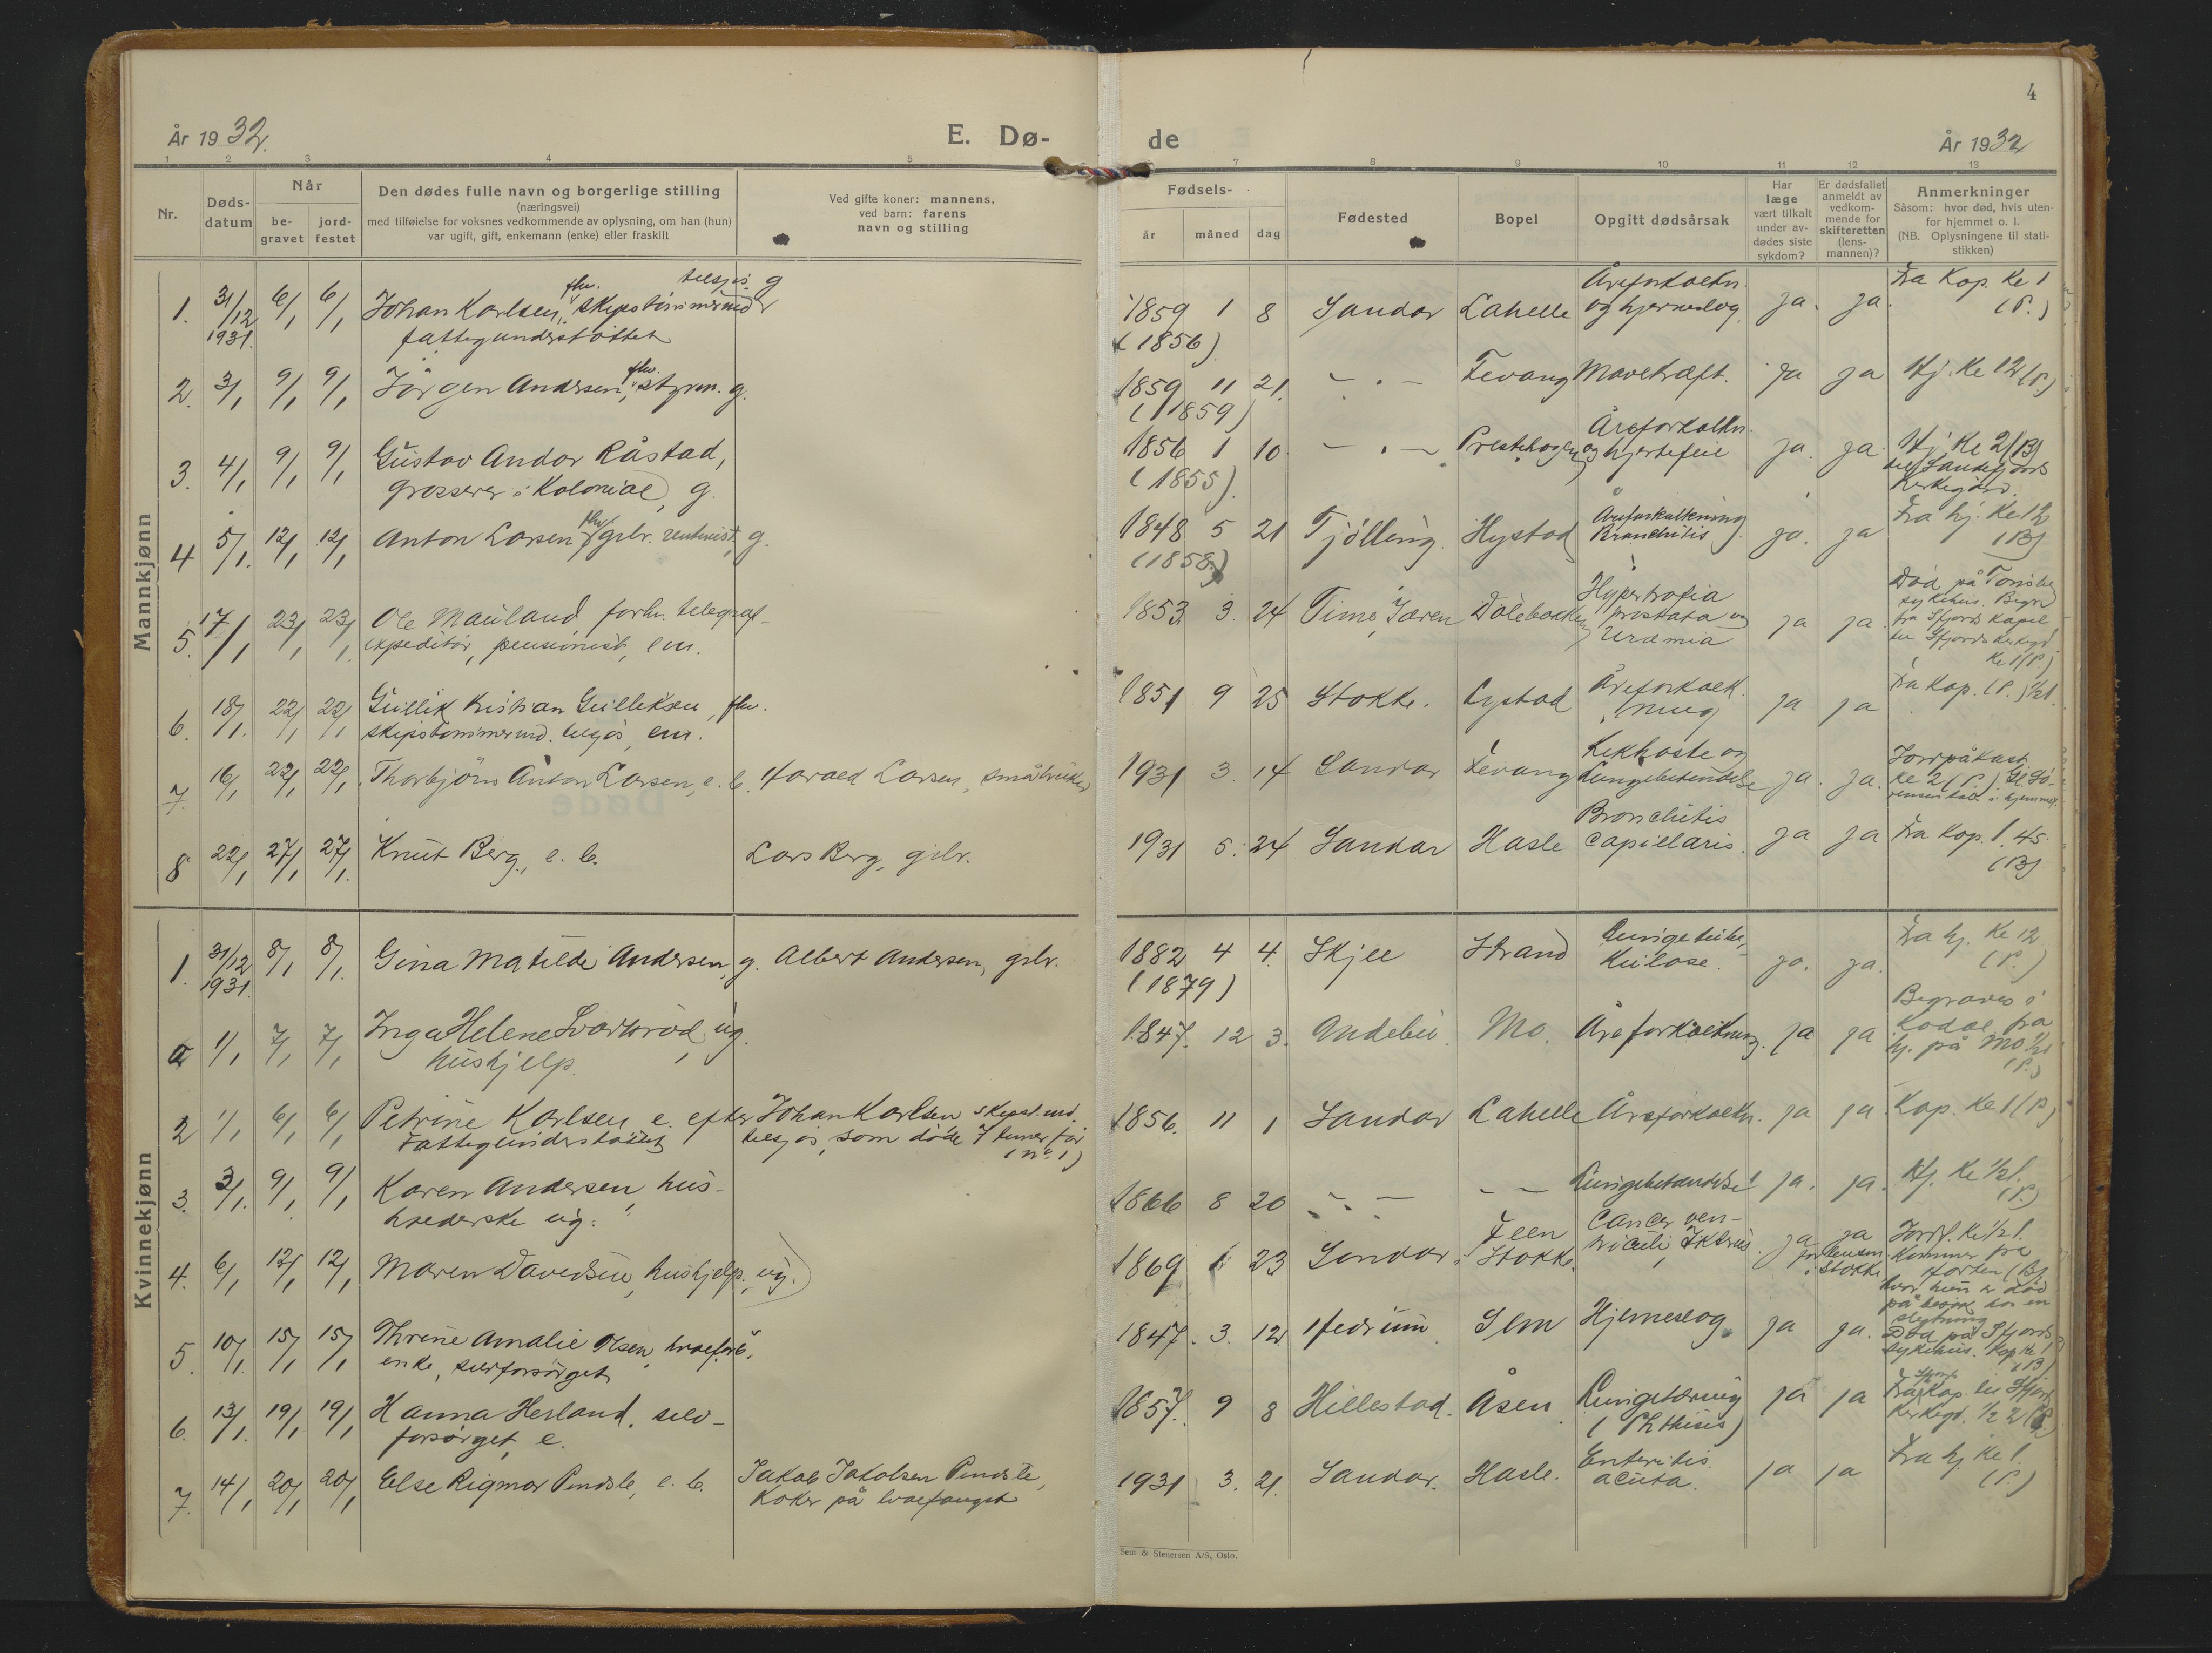 4
År 1932.
E. Dø-
de
År 1932
1 2 3 4 5 7 8 9 10 11 12 13
Nr.
Døds-
datum
Når
be-
gravet
jord-
festet
Den dødes fulle navn og borgerlige stilling
(næringsvei)
med tilføielse for voksnes vedkommende av oplysning, om han (hun)
var ugift, gift, enkemann (enke) eller fraskilt
Ved gifte koner: mannens,
ved barn: farens
navn og stilling
Fødsels-
år måned dag
Fødested
Bopel
Opgitt dødsårsak
Har
læge
vært tilkalt
under av-
dødes siste
sykdom?
Er dødsfallet
anmeldt av
vedkom-
mende for
skifteretten
(lens-
mannen)?
Anmerkninger
Såsom: hvor død, hvis uten-
for hjemmet o. l.
(NB. Oplysningene til stati-
stikken)
Mannkjønn
1. 31/12 1931. 6/1 6/1 Johan Karlsen, fhv. skipstømmermd tilsjøs. g
fattigunderstøttet
1859 1 8 Sandar Lahelle Åreforkalkn.
og hjerneslag. ja. ja. Fra Kap. Kl 1
(P.)
(1856)
2. 3/1 9/1 9/1 Jörgen Andersen, fhv. styrm. g.
1859 11 21. - . - Fevang Mavekræft. ja ja Hj. Kl 12 (P.)
(1859)
3. 4/1 9/1 9/1 Gustav Andor Råstad,
grosserer i Kolonial, g.
1856 1 10 - . - Prestehagen Åreforkalkn.
og hjertefeil ja. ja. Hj. Kl 2 (B)
til Sandefjords
Kirkegård.
(1855).
4 5/1. 12/1 12/1 Anton Larsen fhv. grbr. rentenist, g.
1848 5 21 Tjölling. Hystad Åreforkalkning
Bronchitis ja. ja Fra hj. Kl 12
(B)
(1858)
5. 17/1 23/1 23/1. Ole Mauland forhv. telegraf-
expeditör, pensionist, em.
1853 3. 24 Time, Jæren Dölebakken Hypertrofia
prostata og
Uræmia ja ja. Död på Tönsbg
sykehus. Begr.
fra Sfjords Kapel
til Sfjords Kirkegd.
Kl 1 (P.)
6. 18/1. 22/1 22/1 Gullik Kristian Gulliksen, fhv.
skipstömmermd. tilsjös, em.
1851 9 25 Stokke. Nystad Åreforkalk-
ning ja ja Fra Kap. (P.) 1/2 1.
7 16/1 22/1 22/1. Thorbjörn Anton Larsen, e. b. Harald Larsen, småbruker
1931 3. 14 Sandar Fevang Kikhoste og
Lungebetendelse ja. ja. Jordpåkast.
Kl 2 (P.)
8 22/1 27/1 27/1. Knut Berg, e. b. Lars Berg, grbr.
1931 5. 24 Sandar Hasle Bronchitis
capillaris. ja ja Fra Kap. 1.45
(B)
Kvinnekjønn
1. 31/12 1931. 8/1 8/1. Gina Matilde Andersen, g. Albert Andersen, grbr.
1882 4 4. Skjee Strand Lungetuber-
kulose. ja. ja. Fra hj. Kl 12
(P.)
(1879)
a 1/1 7/1 7/1 Inga Helene Svartsröd, ug.
hushjelp.
1847. 12 3. Andebu. Mo. Åreforkalkning. ja ja Begraves i
Kodal fra
hj. på Mo 1/2 1
(P.)
2 1/1 6/1 6/1 Petrine Karlsen e. efter Johan Karlsen skipst.md.
Fattigunderstöttet tilsjös, som døde 7 timer før
(nr. 1)
1856. 11 1 Sandar Lahelle Åreforkalkn. ja ja. Kap. Kl 1 (P.)
3. 3/1. 9/1 9/1 Karen Andersen, hus-
holderske ug.
1866 8 20 - . - - - Lungebetændelse ja. ja. Hj. Kl 1/2 1.
(P.)
4. 6/1 12/1 12/1 Maren Davidsen, hushjelp, ug.
1869 1 23 Sandar Feen
i Stokke. Cancer ven-
triculi, Ikterus. ja ja
for lensm.
i Stokke Jordf. Kl 1/2 1.
Kommer fra
Horten (B)
hvor hun er död
på besök hos en
slegtning
5. 10/1. 15/1 15/1 Thrine Amalie Olsen, hvalfang.
enke, selvforsörget
1847. 3. 12 Hedrum Sem Hjerneslag ja ja. Död på Sfjords
sykehus. Kap Kl 1
(B)
6. 13/1. 19/1 19/1 Hanna Herland, selv-
forsörget, e.
1857. 9 8 Hillestad. Åsen Lungetæring
(Phthisis) ja ja Fra Sfjords Kap. til Sfjord
Kirkegd. 1/2 2 (P.)
7. 14/1 20/1 20/1 Else Rigmor Pindsle, e. b. Jakob Jakobsen Pindsle,
Kokk på hvalfangst
1931 3. 21. Sandar. Hasle. Enteritis
acuta. ja ja Fra hj. Kl 1.
(P.)
Sem & Stenersen A/S, Oslo.